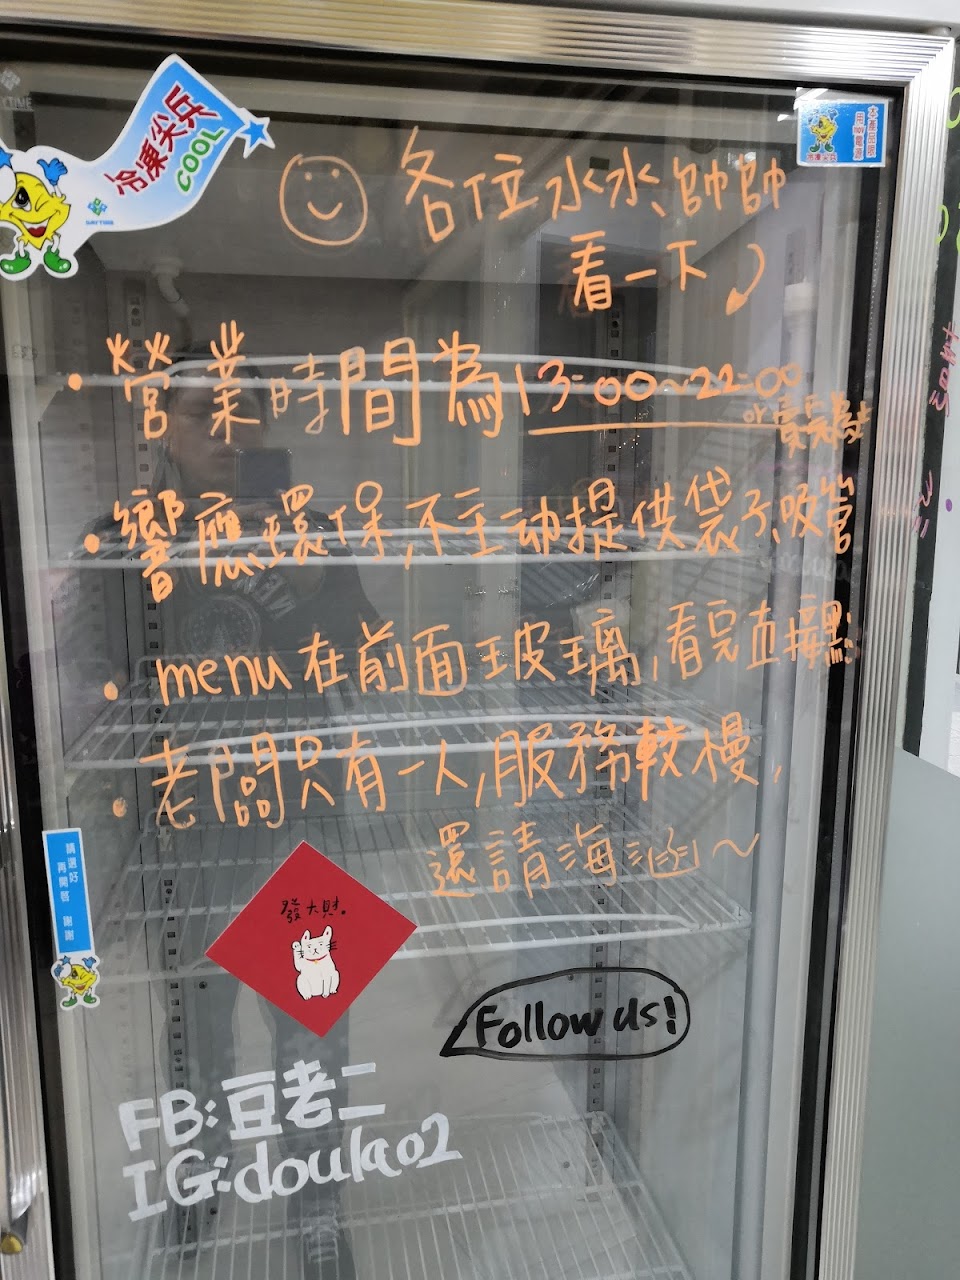 冷凍尖兵
COOL
DAYTIME
本產品限
用110V電源
冷凍尖兵
各位水水、帥帥
看一下
·營業時間為13:00~22:00
or賣完為止
·響應環保,不主動提供袋子、吸管
·menu在前面玻璃,看完直接點
·老闆只有一人,服務較慢,
還請海涵~
請選好
再開啓 謝謝
發大財.
Follow us!
FB:豆老二
IG:doulao2